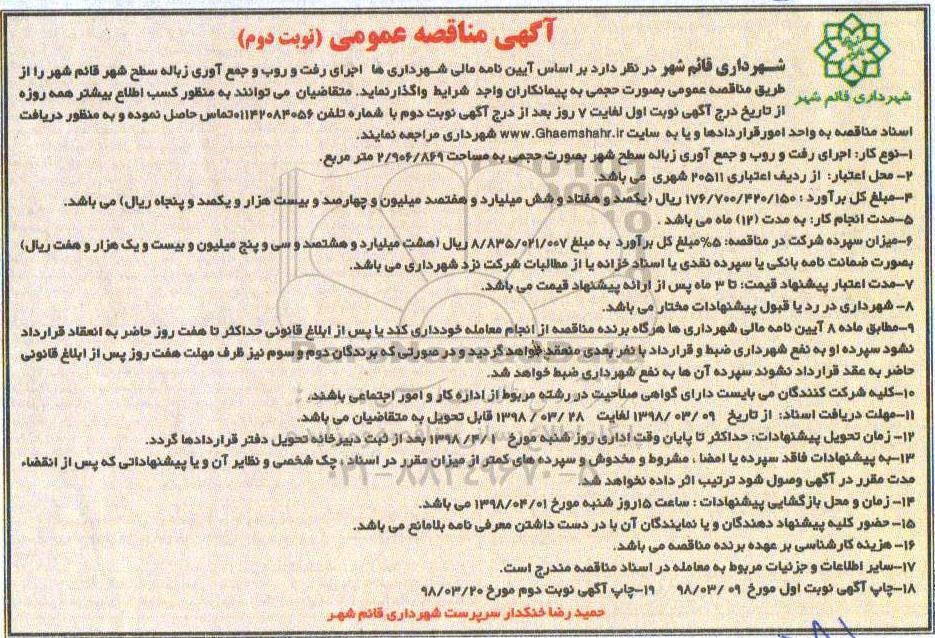 آگهی مناقصه عمومی (نوبت دوم)
شهرداری قائم شهر
شهرداری قائم شهر در نظر دارد بر اساس آیین نامه مالی شهرداری ها اجرای رفت و روب و جمع آوری زباله سطح شهر قائم شهر را از
طریق مناقصه عمومی بصورت حجمی به پیمانکاران واجد شرایط واگذار نماید. متقاضیان می توانند به منظور کسب اطلاع بیشتر همه روزه
از تاریخ درج آگهی نوبت اول لغایت ۷ روز بعد از درج آگهی نوبت دوم با شماره تلفن ۰۱۱۴۲۰۸۴۰۵۶تماس حاصل نموده و به منظور دریافت
اسناد مناقصه به واحد امور قراردادها و یا به سایت www.Ghaemshahr.ir شهرداری مراجعه نمایند.
۱-نوع کار: اجرای رفت و روب و جمع آوری زباله سطح شهر بصورت حجمی به مساحت ۲/۹۰۶/۸۶۹ متر مربع.
۲- محل اعتبار: از ردیف اعتباری ۲۰۵۱۱ شهری می باشد
۴-مبلغ کل برآورد : ۱۷۶/۷۰۰/۴۲۰/۱۵۰ ریال (یکصد و هفتاد و شش میلیارد و هفتصد میلیون و چهارصد و بیست هزار و یکصد و پنجاه ریال) می باشد.
۵-مدت انجام کار: به مدت (۱۲) ماه می باشد .
۶-میزان سپرده شرکت در مناقصه: ۵%مبلغ کل برآورد به مبلغ ۸/۸۳۵/۰۲۱/۰۰۷ ریال (هشت میلیارد و هشتصد و سی و پنج میلیون و بیست و یک هزار و هفت ریال)
بصورت ضمانت نامه بانکی یا سپرده نقدی یا اسناد خزانه یا از مطالبات شرکت نزد شهرداری می باشد.
۷-مدت اعتبار پیشنهاد قیمت: تا ۳ ماه پس از ارائه پیشنهاد قیمت می باشد.
۸- شهرداری در رد یا قبول پیشنهادات مختار می باشد.
۹-مطابق ماده ۸ آیین نامه مالی شهرداری ها هرگاه برنده مناقصه از انجام معامله خودداری کند یا پس از ابلاغ قانونی حداکثر تا هفت روز حاضر به انعقاد قرارداد
نشود سپرده او به نفع شهرداری ضبط و قرارداد با نفر بعدی منعقد خواهد گردید و در صورتی که برندگان دوم و سوم نیز ظرف مهلت هفت روز پس از ابلاغ قانونی
حاضر به عقد قرارداد نشوند سپرده آن ها به نفع شهرداری ضبط خواهد شد.
۱۰-کلیه شرکت کنندگان می بایست دارای گواهی صلاحیت در رشته مربوط از اداره کار و امور اجتماعی باشند.
۱۱-مهلت دریافت اسناد: از تاریخ ۱۳۹۸/۰۳/۰۹ لغایت ۱۳۹۸/۰۳/۲۸ قابل تحویل به متقاضیان می باشد.
۱۲- زمان تحویل پیشنهادات: حداکثر تا پایان وقت اداری روز شنبه مورخ ۱۳۹۸/۴/۰۱ بعد از ثبت دبیرخانه تحویل دفتر قراردادها گردد.
۱۳-به پیشنهادات فاقد سپرده یا امضا ، مشروط و مخدوش و سپرده های کمتر از میزان مقرر در اسناد ، چک شخصی و نظایر آن و یا پیشنهاداتی که پس از انقضاء
مدت مقرر در آگهی وصول شود ترتیب اثر داده نخواهد شد.
۱۴- زمان و محل بازگشایی پیشنهادات : ساعت ۱۵روز شنبه مورخ ۱۳۹۸/۰۴/۰۱ می باشد.
۱۵- حضور کلیه پیشنهاد دهندگان و یا نمایندگان آن با در دست داشتن معرفی نامه بلامانع می باشد.
۱۶- هزینه کارشناسی بر عهده برنده مناقصه می باشد.
۱۷-سایر اطلاعات و جزئیات مربوط به معامله در اسناد مناقصه مندرج است.
۱۸-چاپ آگهی نوبت اول مورخ ۹۸/۰۳/۰۹ ۱۹-چاپ آگهی نوبت دوم مورخ ۹۸/۰۳/۲۰
حمید رضا خنکدار سرپرست شهرداری قائم شهر
۰۲۱-۸۸۳۴۹۶۷۰-۸